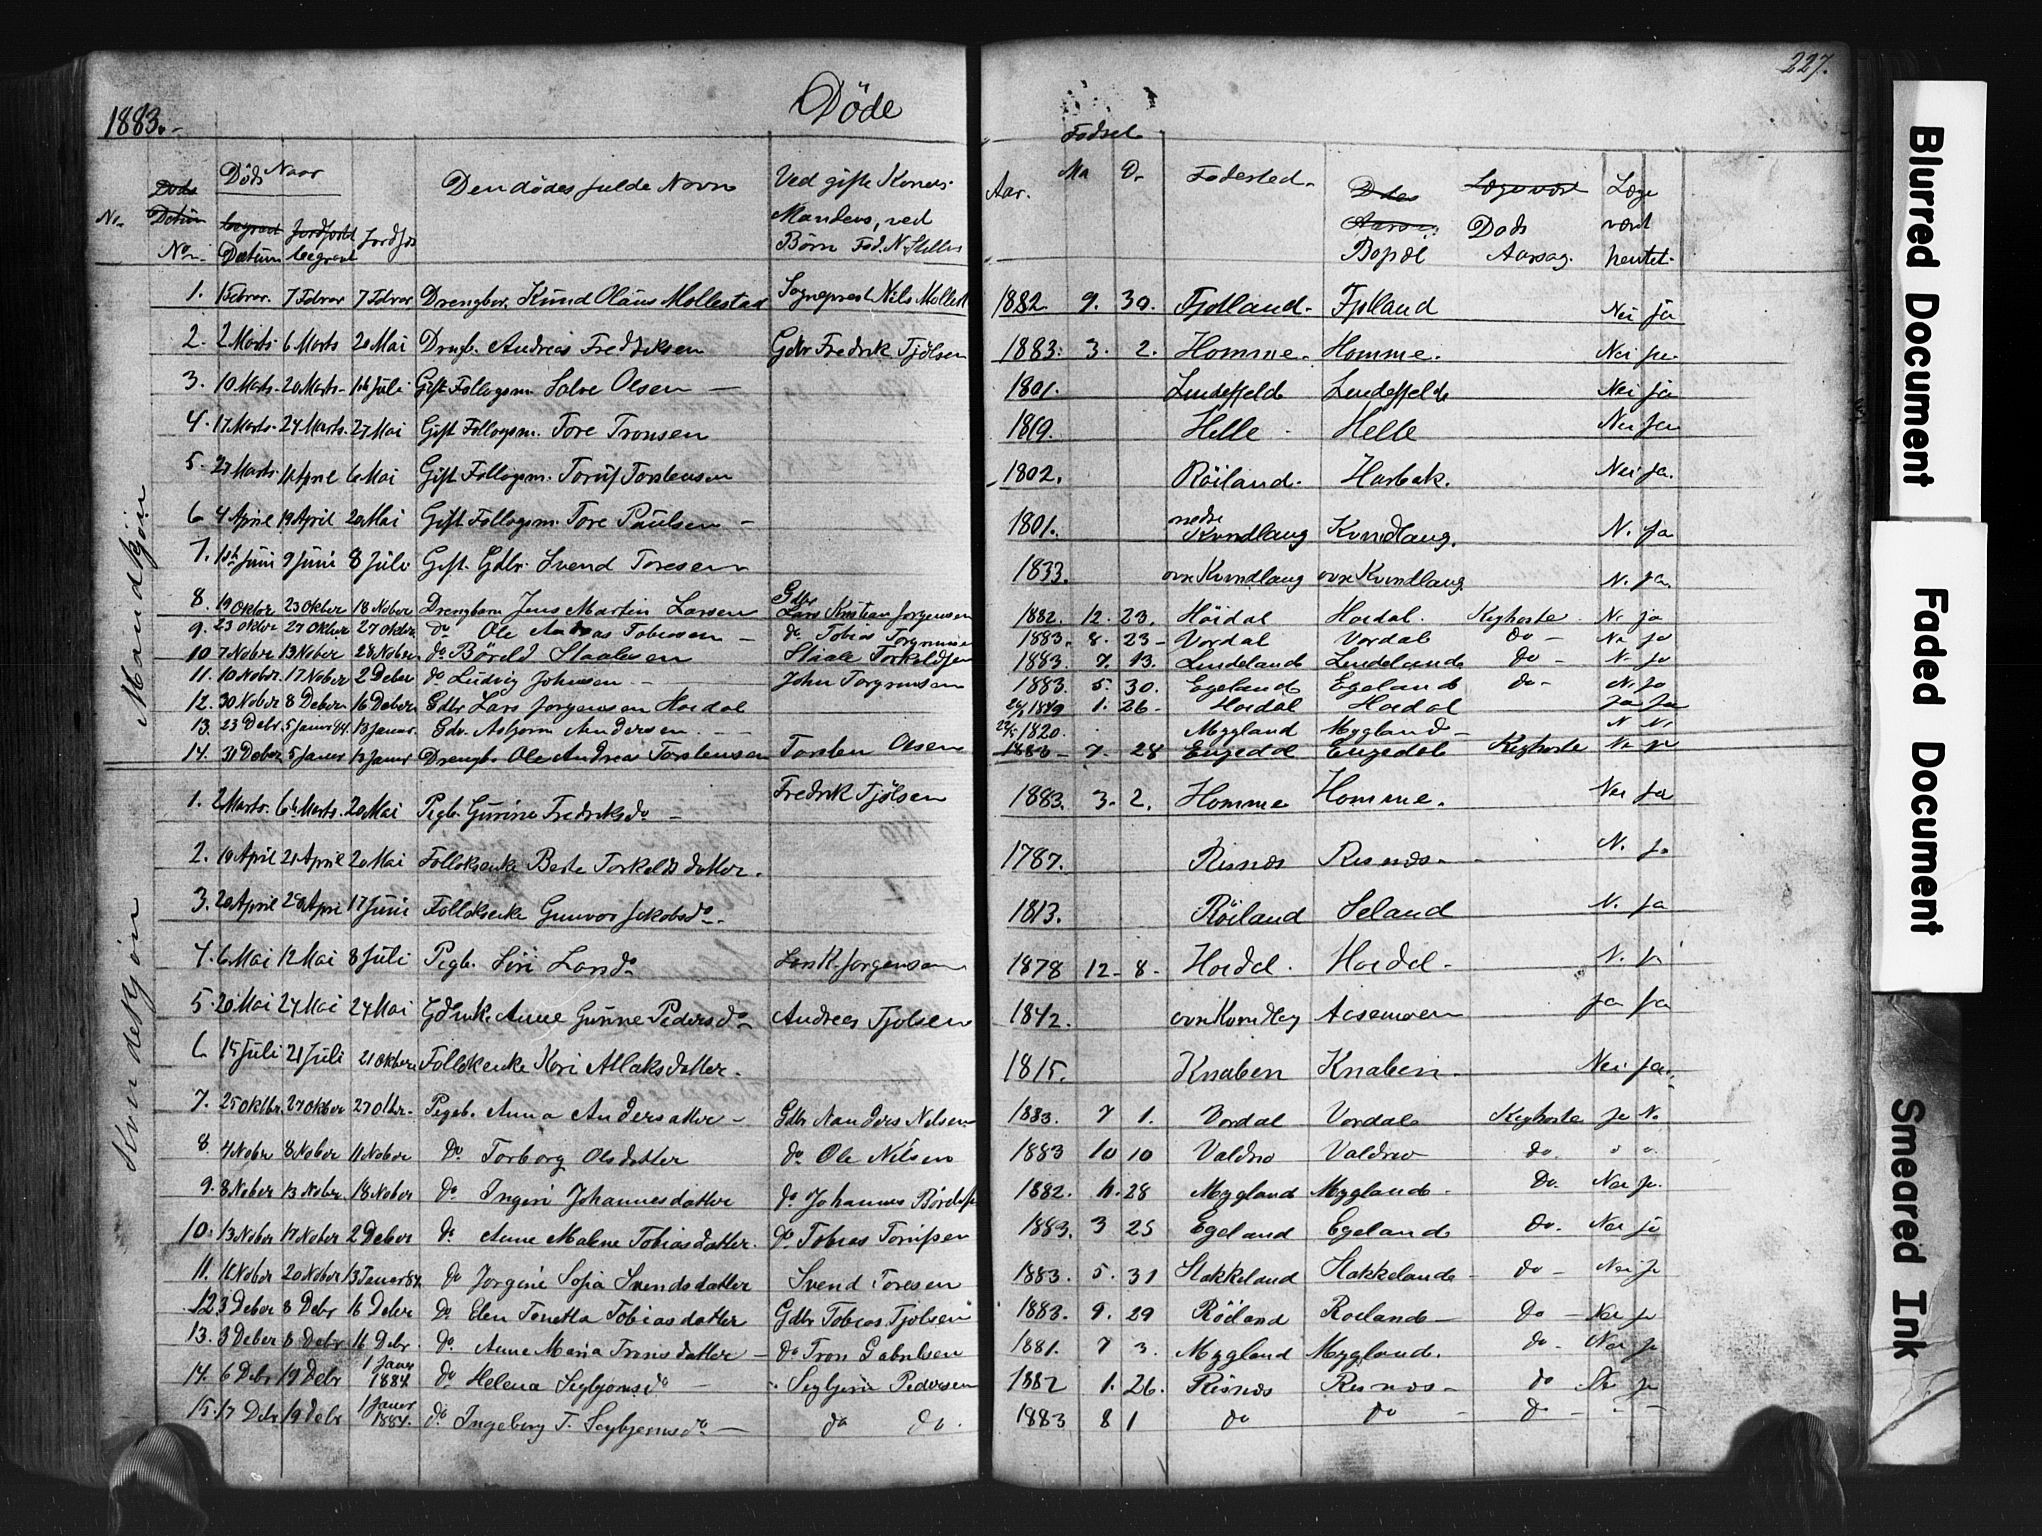 227.
1883.-
Døde
Fødsel
No. Døds Datum No. Døds Naar Datum begravet Jordfæst Den dødes fulde Navn Ved gifte Koners Mandens, ved Børn Fad. N. Stilling Aar. Ma D. Fødested. Døds Aarsag: Bopæl Lægevæst Døds Aarsag. Læge været hentet.
Mandkjøn
1. 1 Febrar. 7 Febrar 7 Febrar Drengbr. Knud Olaus Mollestad Sogneprest Nils Mollest 1882 9. 30. Fjotland. Fjotland Nei ja
2. 2 Marts. 6 Marts 20 Mai Drngb. Andreas Fredriksen Gdbr Fredrik Tjølsen 1883. 3. 2. Homme. Homme. Nei ja.
3. 10 Marts. 20 Marts. Juli Gift Follogsm. Salve Olsen — 1801. Lindefjeld Lindefjeld Nei ja
4. 17 Marts. 24 Marts. 27 Mai Gift Follogsm. Tore Tronsen 1819. Helle. Helle Nei ja
5. 27 Marts. 11 April 6 Mai Gift Follogsm. Torkel Torstensen 1802. Røiland. Harbak. Nei ja.
6 4 April 19 April 20 Mai Gift Follogsm. Tore Paulsen — 1801. nedre Kvindlaug Kvindlaug. N. ja
7. Juni 9 Juni 8 Juli Gift. Gdbr. Svend Toresen 1833. ovre Kvindlaug ovre Kvindlaug. N. ja.
8. 19 Oktbr 23 Oktber 18 Nober Drengbarn Jens Martin Larsen Gdbr Lars Kristian Jorgensen 1882. 12. 23. Høidal Hordal. Kighoste N. ja
9. 23 oktbr 27 Oktber 27 oktbr do Ole Andreas Tobiassen — do Tobias Torgrimsen 1883. 8. 23 - Vordal Vordal do — Ne ja
10 7 Nober 13 Nober 28 Nober. do Børild Staalesen Staale Torkeldsen 1883. 7. 13. Lindeland Lindeland do — N- ja
11. 10 Nobr. 17 Nober 2 Deber do Ludvig Johnsen — John Torgrimsen 1883. 5. 30. Egeland Egeland do — N. ja
12. 30 Nober 8 Deber 16 Deber Gdbr Lars Jorgensen Hordal 1849 1. 26 - Hordal Hordal ja ja
13. 23 Debr. 5 Januar 84. 13 Januar. Gdbr. Asbjorn Andersen. — 1820. Mygland Mygland — N N.
14. 31 Deber 5 Januar 13 Januar Drengb. Ole Andreas Torstensen Torsten Olsen 1883 - 7. 28 Engedal Engedal Kighoste N. ja
Kvindekjøn
1. 2 Marts. 6 Marts. 20 Mai Pigb. Gurine Fredriksdo — Fredrik Tjølsen 1883. 3. 2. Homme Homme. Nei ja
2. 10 April 21 April 20 Mai Follokenke Berte Torkeldsdatter. 1787. Risnes Risnes — N. ja
3. 20 April 28 April 17 Juni Follokenke Gunvor Jakobsdo 1813. Røiland Seland N. ja
4. 6 Mai 12 Mai 8 Juli Pigb. Siri Larsdo Lars K. Jorgensen 1878 12 - 8 - Hordal. Hordal - N. ja
5. 20 Mai 24 Mai 24 Mai Gdbrk. Anne Gurine Pedersdo Andreas Tjolsen 1842. ovre Kvindlog Aasemoen ja ja
6. 15 Juli 21 Juli 21 Oktber Follokenke Kari Atlaksdatter. 1815. Knaben Knaben. Nei ja
7. 25 Oktbr. 27 Oktber 27 Otbr. Pigeb. Anna Andersdatter — Gdbr Nanders Nilsen 1883. 7 1. Vordal Vordal Kighoste ja N.
8. 4 Nober 8 Nober 11 Nober do Torborg Olsdatter do Ole Nilsen 1883 10 10 Valdrø Valdrø do.
9. 8 Nober 13 Nober. 18 Nober do Ingeri Johannesdatter do Johannes 1882. 11. 28 Mygland Mygland. do. Nei ja.
10. 13 Nober 17 Nober 2 Deber do Anne Malene Tobiasdatter. do Tobias 1883. 3 25 Egeland Egeland do. Nei ja
11. 16 Nober 20 Nober 13 Januar 84. do Jorgine Sofia Svendsdatter Svend Toresen 1883. 5. 31 Stakkeland Stakkeland do — Nei ja
12 3 Deber 8 Debr 16 Deber do Elen Tonetta Tobiasdatter Gdbr Tobias Tjolsen 1883. 9. 29 Røiland Roiland — do — Nei ja
13. 3 Deber 8 Debr 16 Debr do Anne Maria Tronsdatter — do Tron Gabrielsen 1881. 7 3. Mygland Mygland. do. Nei ja
14. 6 Debr 19 Debr 1 Januar 1884 do Helena Segbjornsdo — Segbjorn Pedersen 1882 1. 26. Risnes Risnes — do ja
15. 17 Debr 19 Debr 1 Januar 1884. do Ingeborg T. Segbjornsdo — do do. 1883 8 1 do do — do —
Blurred Document
Faded Document
Smeared Ink